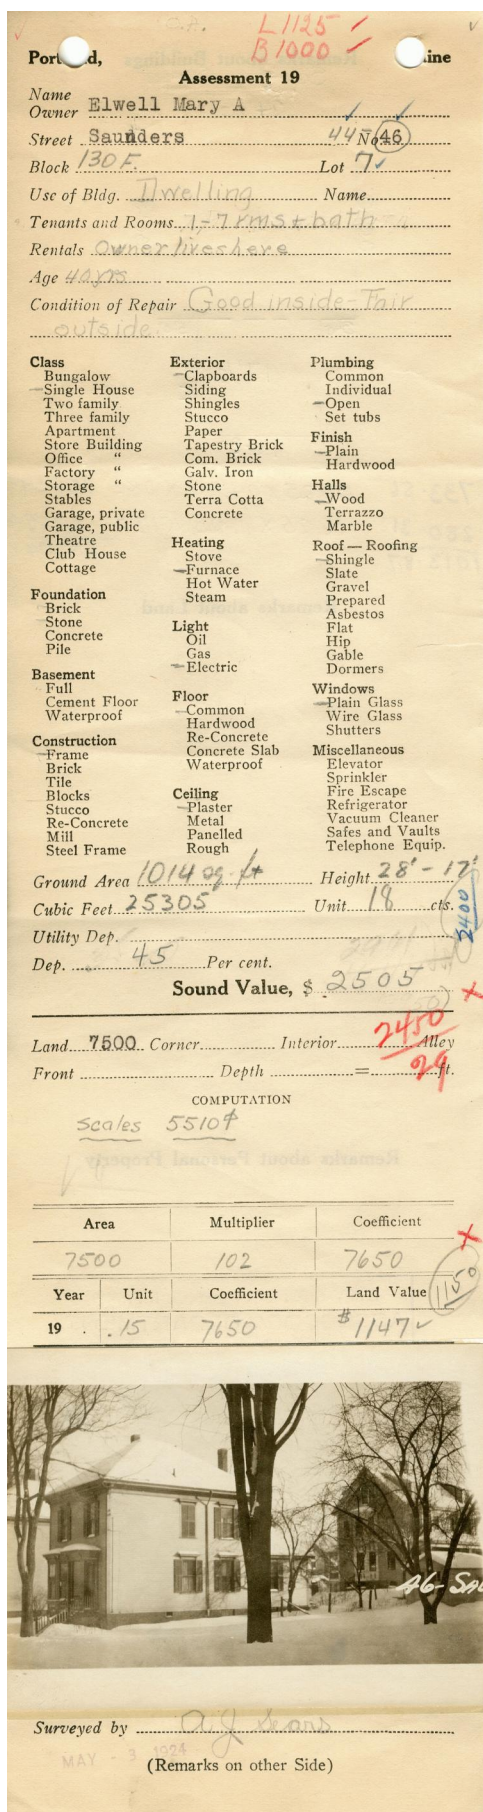 L 1125
B 1000
Portland, Maine
Assessment 19
Name
Owner Elwell Mary A
Street Saunders 44- No 46
Block 130 F. Lot 7
Use of Bldg. Dwelling Name
Tenants and Rooms 1-7 rms & bath
Rentals Owner lives here
Age 40 yrs
Condition of Repair Good inside - Fair
outside.
Class
Bungalow
Single House
Two family
Three family
Apartment
Store Building
Office "
Factory "
Storage "
Stables
Garage, private
Garage, public
Theatre
Club House
Cottage
Foundation
Brick
Stone
Concrete
Pile
Basement
Full
Cement Floor
Waterproof
Construction
Frame
Brick
Tile
Blocks
Stucco
Re-Concrete
Mill
Steel Frame
Exterior
Clapboards
Siding
Shingles
Stucco
Paper
Tapestry Brick
Com. Brick
Galv. Iron
Stone
Terra Cotta
Concrete
Heating
Stove
Furnace
Hot Water
Steam
Light
Oil
Gas
Electric
Floor
Common
Hardwood
Re-Concrete
Concrete Slab
Waterproof
Ceiling
Plaster
Metal
Panelled
Rough
Plumbing
Common
Individual
Open
Set tubs
Finish
Plain
Hardwood
Halls
Wood
Terrazzo
Marble
Roof — Roofing
Shingle
Slate
Gravel
Prepared
Asbestos
Flat
Hip
Gable
Dormers
Windows
Plain Glass
Wire Glass
Shutters
Miscellaneous
Elevator
Sprinkler
Fire Escape
Refrigerator
Vacuum Cleaner
Safes and Vaults
Telephone Equip.
Ground Area 1014 sq. ft Height 28' - 17'
Cubic Feet 25305 Unit 18 cts.
2400
Utility Dep.
Dep. 45 Per cent.
Sound Value, $ 2505
2450
Land 7500 Corner Interior Alley
29
Front Depth = ft.
COMPUTATION
Scales 5510
Area Multiplier Coefficient
7500 102 7650
1150
Year Unit Coefficient Land Value
19 . .15 7650 $1147
46- SAU
Surveyed by A J Sears
MAY - 3 1924
(Remarks on other Side)